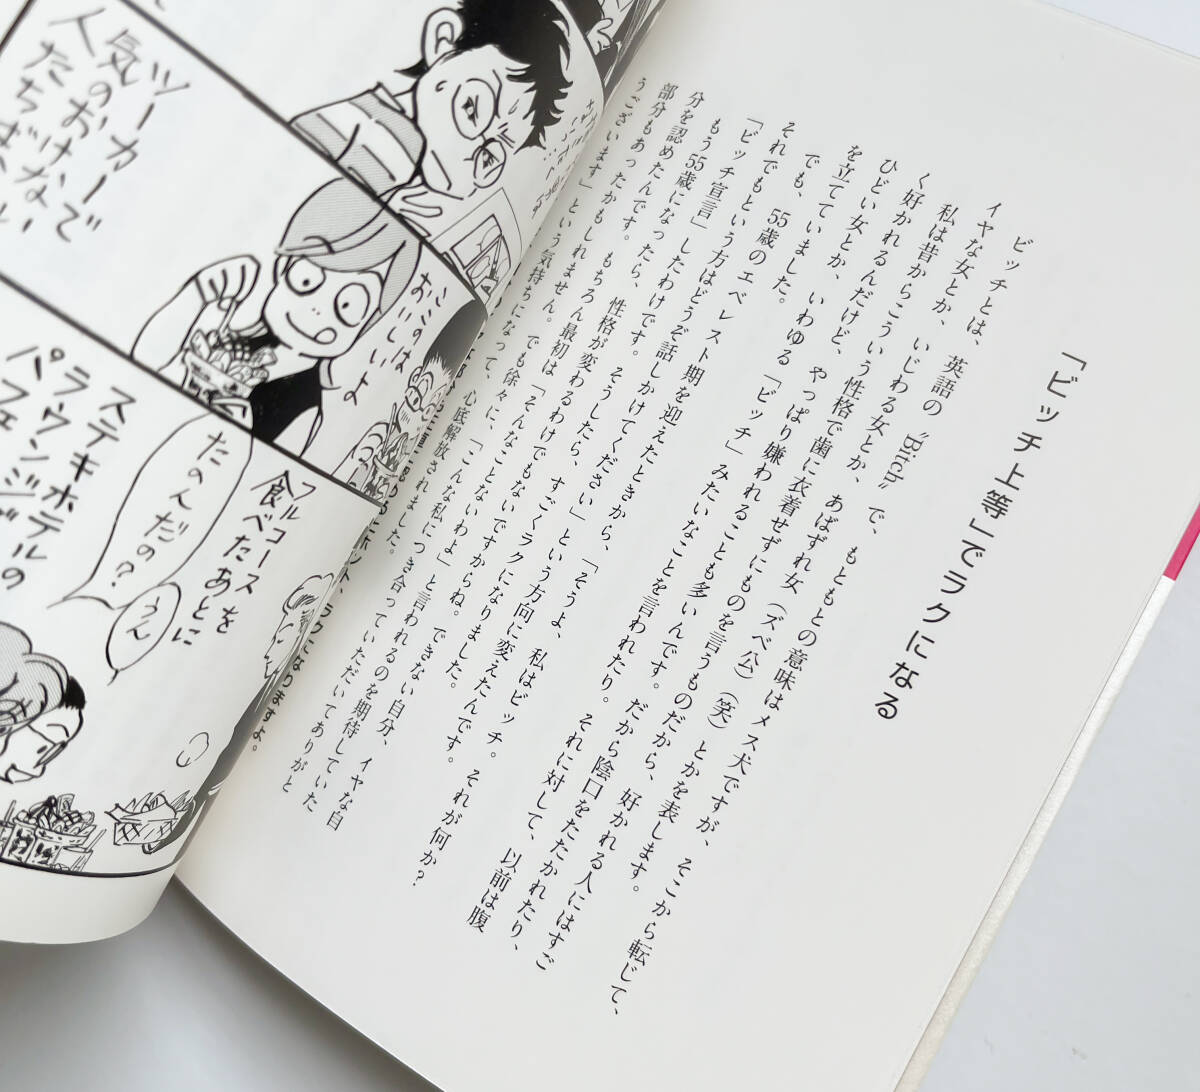 「ビッチ上等」でラクになる
ビッチとは、英語の〝Bich〟で、もともとの意味はメス犬ですが、そこから転じて、
イヤな女とか、いじわる女とか、あばずれ女(ズベ公)(笑)とかを表します。
私は昔からこういう性格で歯に衣着せずにものを言うものだから、好かれる人にはすご
く好かれるんだけど、やっぱり嫌われることも多いんです。だから陰口をたたかれたり、
ひどい女とか、いわゆる「ビッチ」みたいなことを言われたり。それに対して、以前は腹
を立てていました。
でも、55歳のエベレスト期を迎えたときから、「そうよ、私はビッチ。それが何か?
それでもという方はどうぞ話しかけてください」という方向に変えたんです。
「ビッチ宣言」したわけです。そうしたら、すごくラクになりました。
もう55歳になったら、性格が変わるわけでもないですからね。できない自分、イヤな自
分を認めたんです。もちろん最初は「そんなことないわよ」と言われるのを期待していた
部分もあったかもしれません。でも徐々に、「こんな私につき合っていただいてありがと
うございます」という気持ちになって、心底解放されました。
ホント、ラクになりますよ。
ツーカーで
気のおけない
人たち
ここのは
おいしいよ
フルコースを
食べたあとに
たのんだの?
うん
ステキホテルの
ラウンジで
パフェ